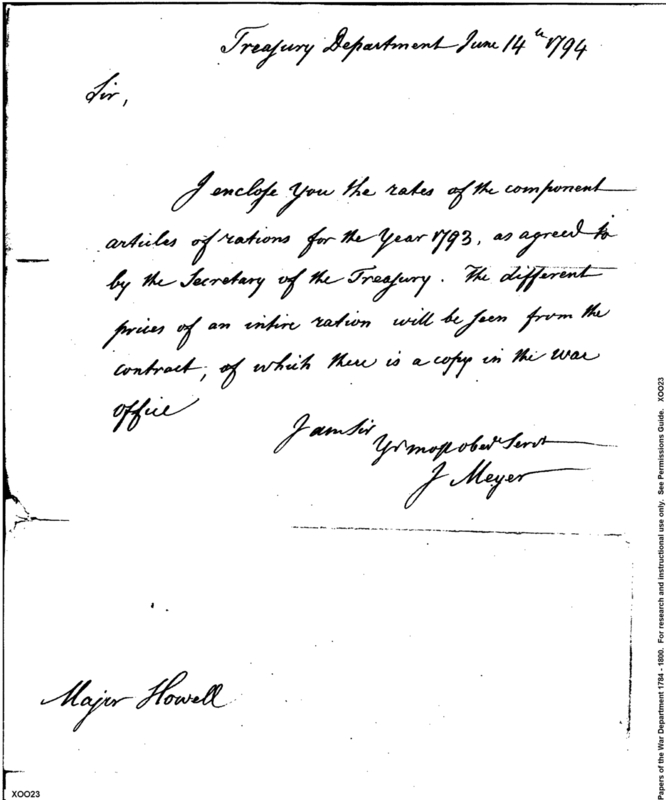 Treasury Department June 14th 1794
Sir,
I enclose You the rates of the component
articles of rations for the Year 1793, as agreed to
by the Secretary of the Treasury. The different
prices of an intire ration will be seen from the
contract, of which there is a copy in the war
office
I am Sir
Yr most obedt Servt
J Meyer
Major Howell
XOO23
Papers of the War Department 1784 - 1800. For research and instructional use only. See Permissions Guide. XOO23